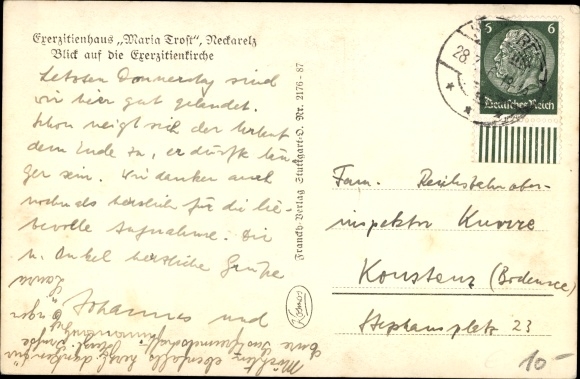 Exerzitienhaus „Maria Trost“, Neckarelz
Blick auf die Exerzitienkirche
Letzten Donnerstag sind
wir hier gut gelandet.
Schon neigt sich der Urlaub
dem Ende zu, er dürfte län-
ger sein. Wir danken auch
nochmals herzlich für die lie-
bevolle Aufnahme. Dir
u. Onkel herzliche Grüße
Johannes und
Möchten ebenfalls herzl. danken für
Eure Gastfreundschaft
Franckh-Verlag Stuttgart-O. Nr. 2176-87
Kosmos
28.
5 6
Deutsches Reich
Fam. Reichsbahnober-
inspektor Knorre
Konstanz (Bodensee)
Stephansplatz 23
10-